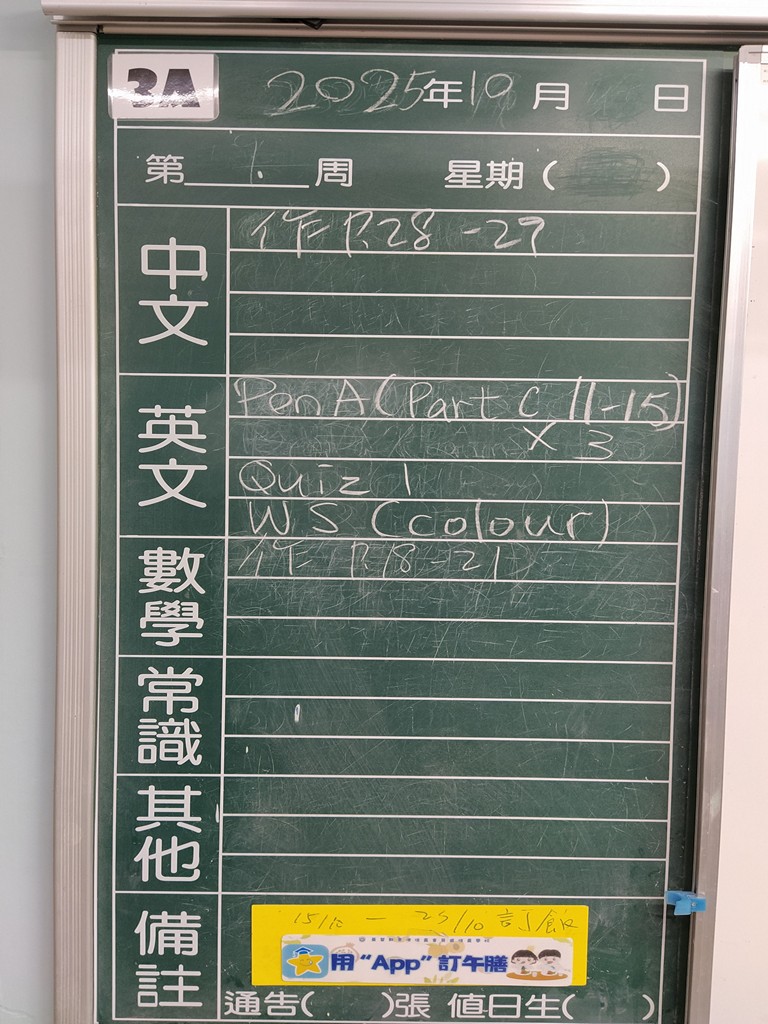 3A 2025年10月 日
第 周 星期( )
中文
作 P.28-29
英文
Pen A (Part C 11-15)
× 3
Quiz 1
WS (colour)
數學
作 P.18-21
常識
其他
備註
15/10 — 23/10 訂飯
用“App”訂午膳
通告( )張 值日生( )